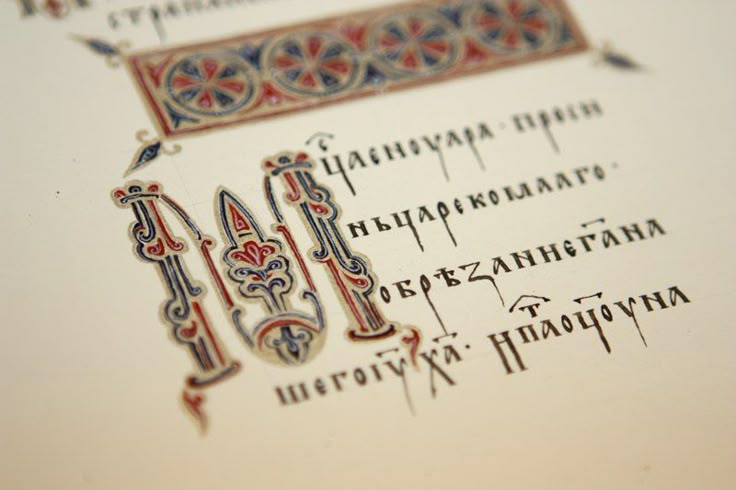 стрепе
Мⷭ҇цаеноуара · проси
ньцарекомааго ·
обрѣзаннегна҃на
шегоіу҃ха҃ · Ипⷮлоц҃оуна